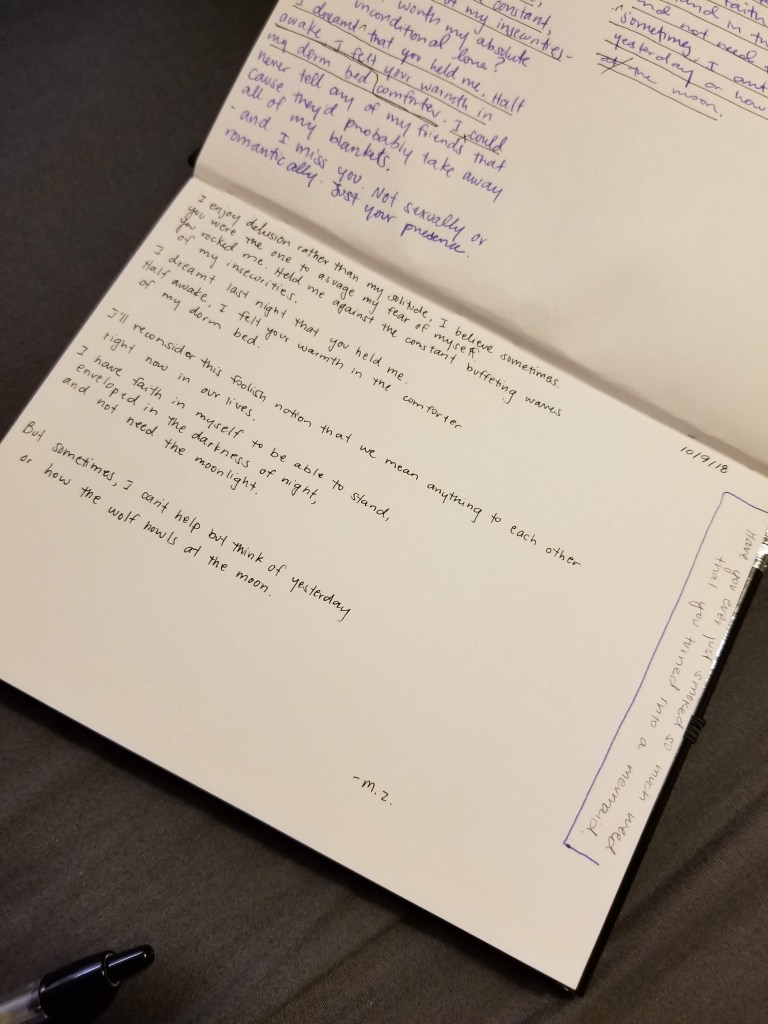 constant,
worth my absolute
of my insecurities-
unconditional love?
I dreamt that you held me. Half
awake, I felt your warmth in
my dorm bed comforter. I could
never tell any of my friends that
cause they'd probably take away
all of my blankets.
- and I miss you. Not sexually or
romantically. Just your presence.
faith
and in
and not need
sometimes, I
yesterday or how
at the moon.
I enjoy delusion rather than my solitude, I believe sometimes.
you were the one to asvage my fear of myself.
You rocked me. Held me against the constant buffeting waves
of my insecurities.
I dreamt last night that you held me.
Half awake, I felt your warmth in the comforter
of my dorm bed.
I'll reconsider this foolish notion that we mean anything to each other
right now in our lives.
I have faith in myself to be able to stand,
enveloped in the darkness of night,
and not need the moonlight.
But sometimes, I can't help but think of yesterday
or how the wolf howls at the moon.
-M.Z.
10/9/18
Have you ever just smoked so much weed
that you turned into a mermaid.